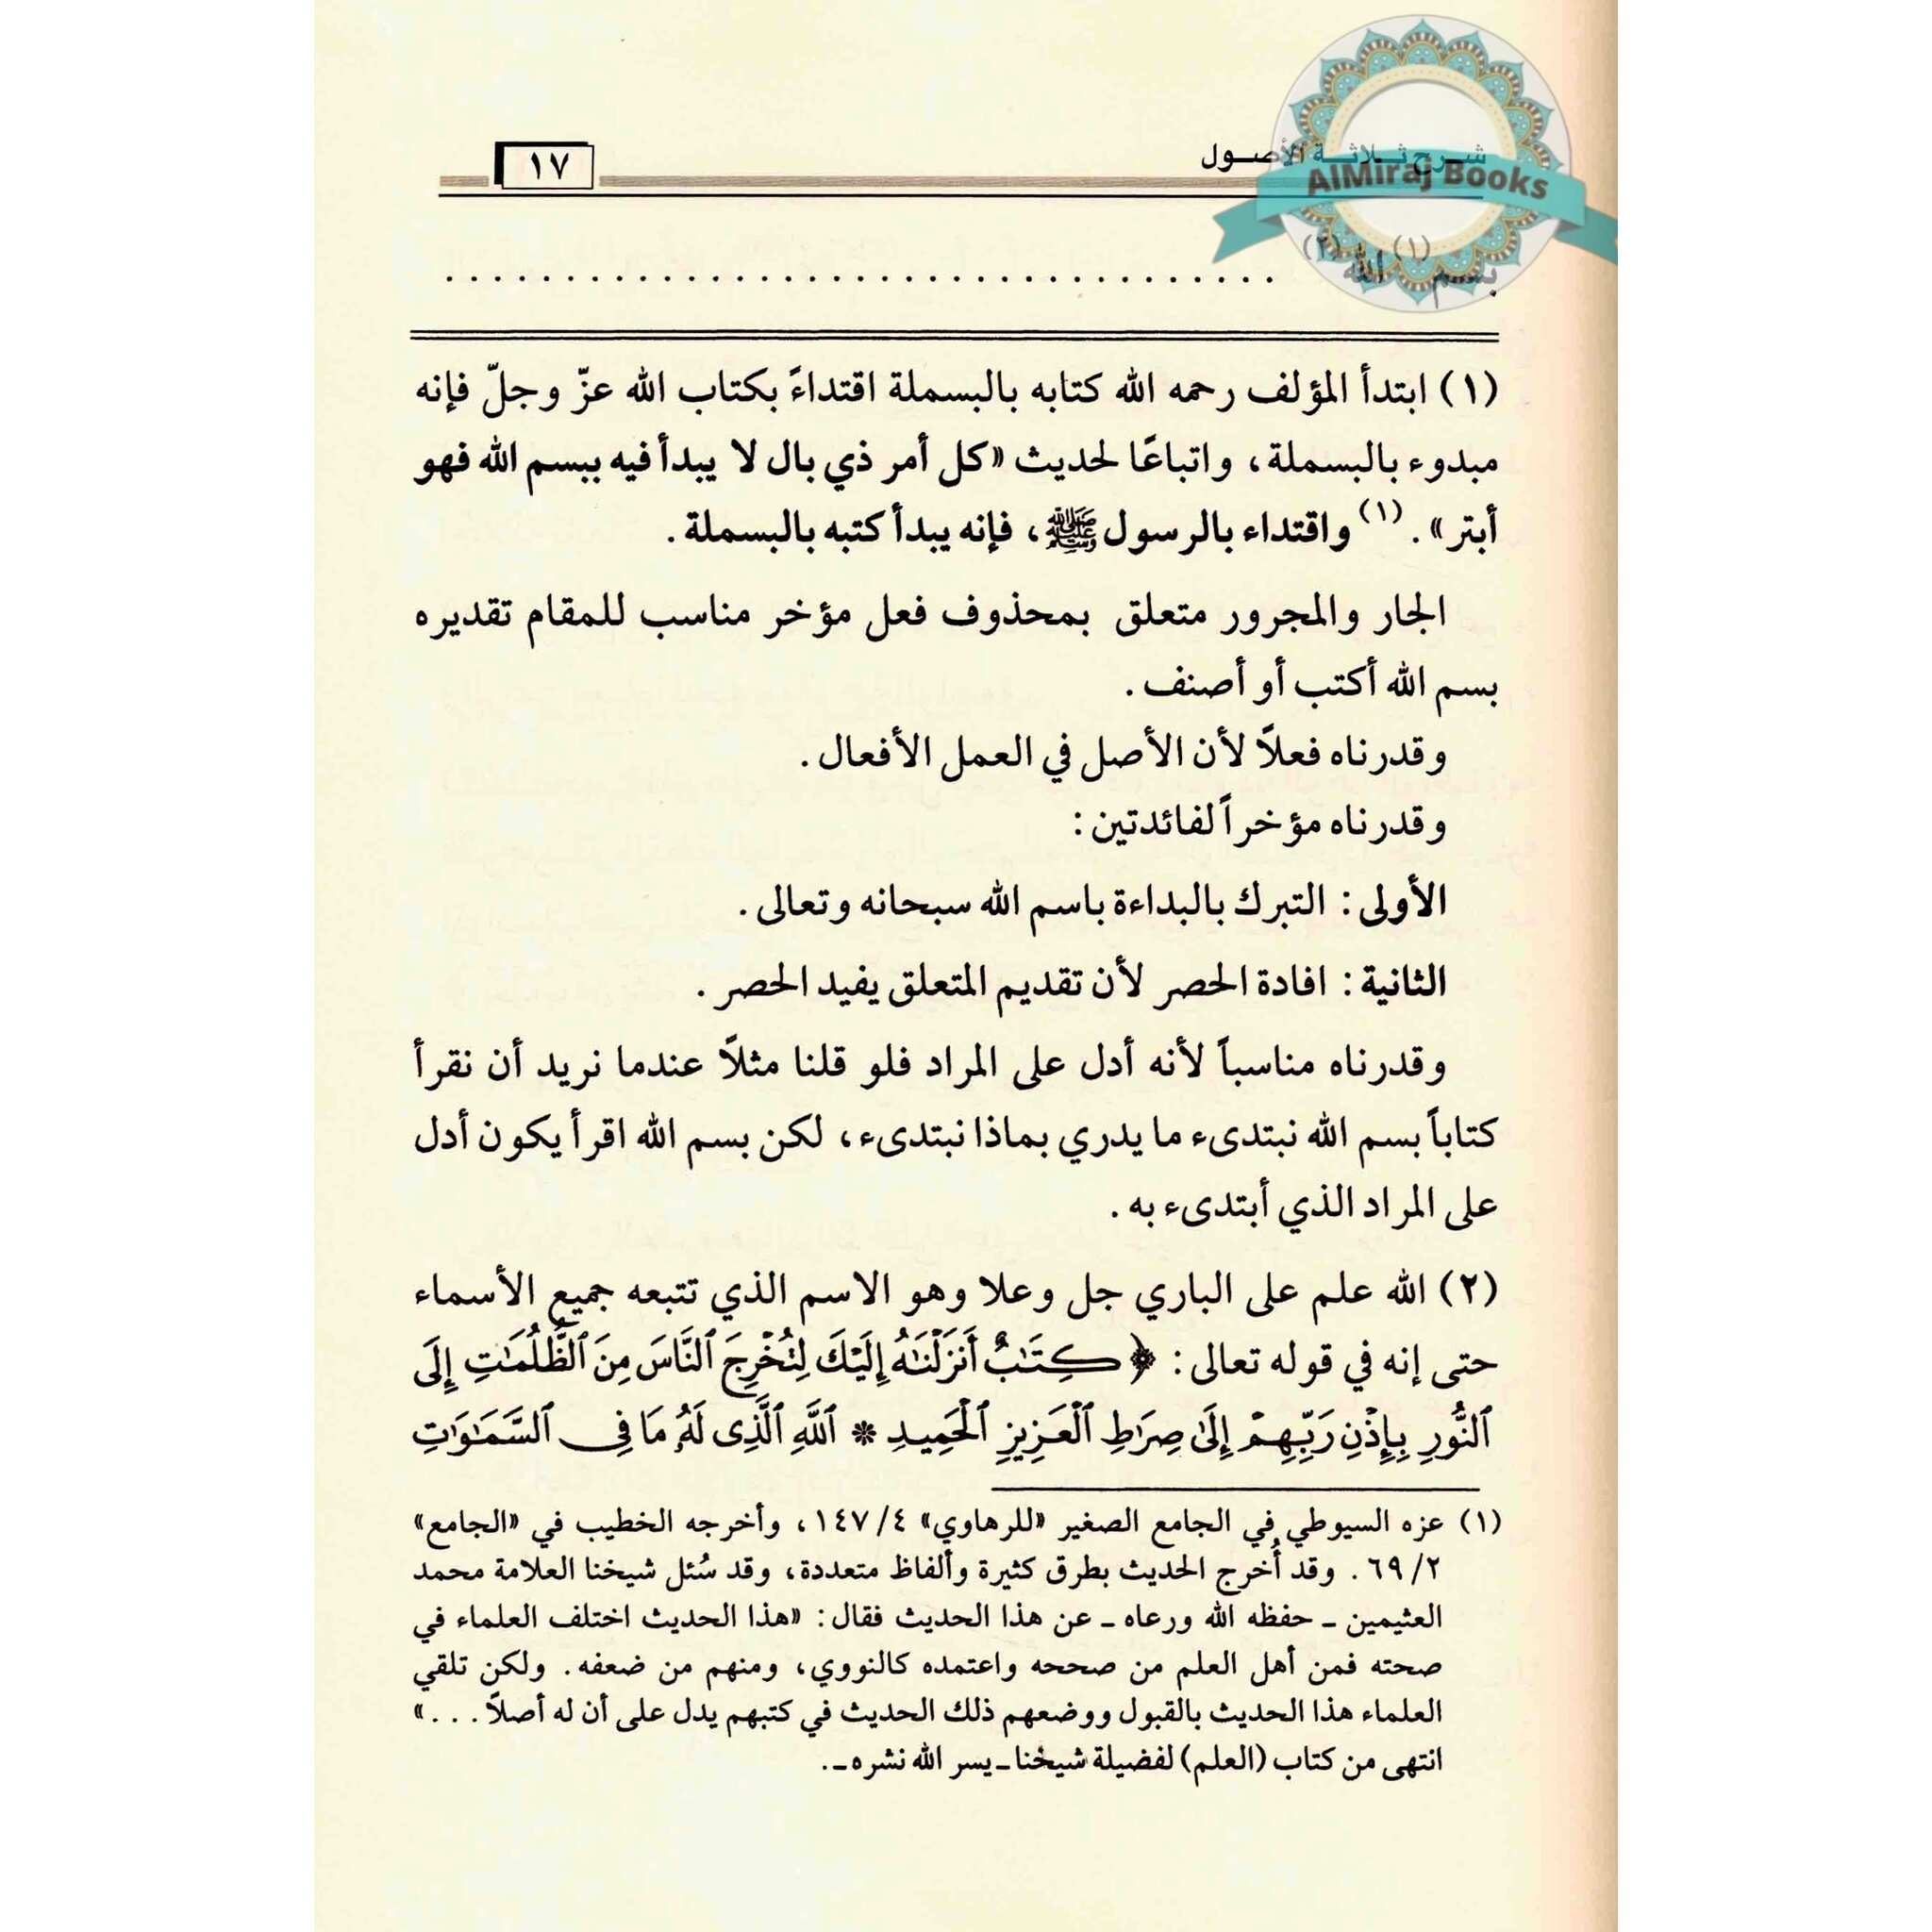 شرح ثلاثة الأصول
١٧
AlMiraj Books
بسم (١) الله (٢) . . . . . . . . . . . . . . . . . . . . . . . . . . . . . . . . . . .
(١) ابتدأ المؤلف رحمه الله كتابه بالبسملة اقتداءً بكتاب الله عزّ وجلّ فإنه
مبدوء بالبسملة، واتباعًا لحديث «كل أمر ذي بال لا يبدأ فيه ببسم الله فهو
أبتر». (١) واقتداء بالرسول ﷺ، فإنه يبدأ كتبه بالبسملة.
الجار والمجرور متعلق بمحذوف فعل مؤخر مناسب للمقام تقديره
بسم الله أكتب أو أصنف.
وقدرناه فعلاً لأن الأصل في العمل الأفعال.
وقدرناه مؤخراً لفائدتين:
الأولى: التبرك بالبداءة باسم الله سبحانه وتعالى.
الثانية: افادة الحصر لأن تقديم المتعلق يفيد الحصر.
وقدرناه مناسباً لأنه أدل على المراد فلو قلنا مثلاً عندما نريد أن نقرأ
كتاباً بسم الله نبتدىء ما يدري بماذا نبتدىء، لكن بسم الله اقرأ يكون أدل
على المراد الذي أبتدىء به.
(٢) الله علم على الباري جل وعلا وهو الاسم الذي تتبعه جميع الأسماء
حتى إنه في قوله تعالى: ﴿كِتَٰبٌ أَنزَلْنَٰهُ إِلَيْكَ لِتُخْرِجَ ٱلنَّاسَ مِنَ ٱلظُّلُمَٰتِ إِلَى
ٱلنُّورِ بِإِذْنِ رَبِّهِمْ إِلَىٰ صِرَٰطِ ٱلْعَزِيزِ ٱلْحَمِيدِ * ٱللَّهِ ٱلَّذِى لَهُۥ مَا فِى ٱلسَّمَٰوَٰتِ
(١) عزه السيوطي في الجامع الصغير «للرهاوي» ٤/ ١٤٧، وأخرجه الخطيب في «الجامع»
٢/ ٦٩. وقد أُخرج الحديث بطرق كثيرة وألفاظ متعددة، وقد سُئل شيخنا العلامة محمد
العثيمين ـ حفظه الله ورعاه ـ عن هذا الحديث فقال: «هذا الحديث اختلف العلماء في
صحته فمن أهل العلم من صححه واعتمده كالنووي، ومنهم من ضعفه. ولكن تلقي
العلماء هذا الحديث بالقبول ووضعهم ذلك الحديث في كتبهم يدل على أن له أصلاً...»
انتهى من كتاب (العلم) لفضيلة شيخنا ـ يسر الله نشره ـ.